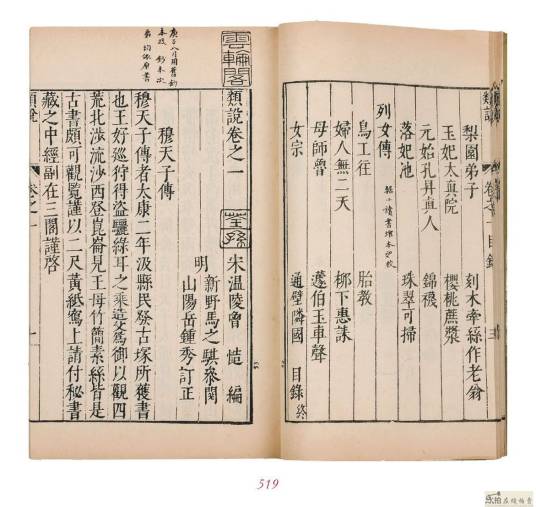 類說
卷之一目錄
梨園弟子
刻木牽絲作老翁
玉妃太真院
櫻桃蔗漿
元始孔昇真人
錦襪
落妃池
珠翠可掃
列女傳
烏工往
胎教
婦人無二天
柳下惠誄
母師曾
蘧伯玉車聲
女宗
通壁隣國
目錄終
雲輪閣
荃孫
類說卷之一
宋溫陵曾慥編
明新野馬之騏參閱
山陽岳鍾秀訂正
穆天子傳
穆天子傳者太康二年汲縣民發古塚所獲書
也王好巡狩得盜驪綠耳之乘造父為御以觀四
荒北渉流沙西登崑崙見王母竹簡素絲皆是
古書頗可觀覧謹以二尺黃紙寫上請付秘書
藏之中經副在三閣謹啓
類說
卷之一
一
519